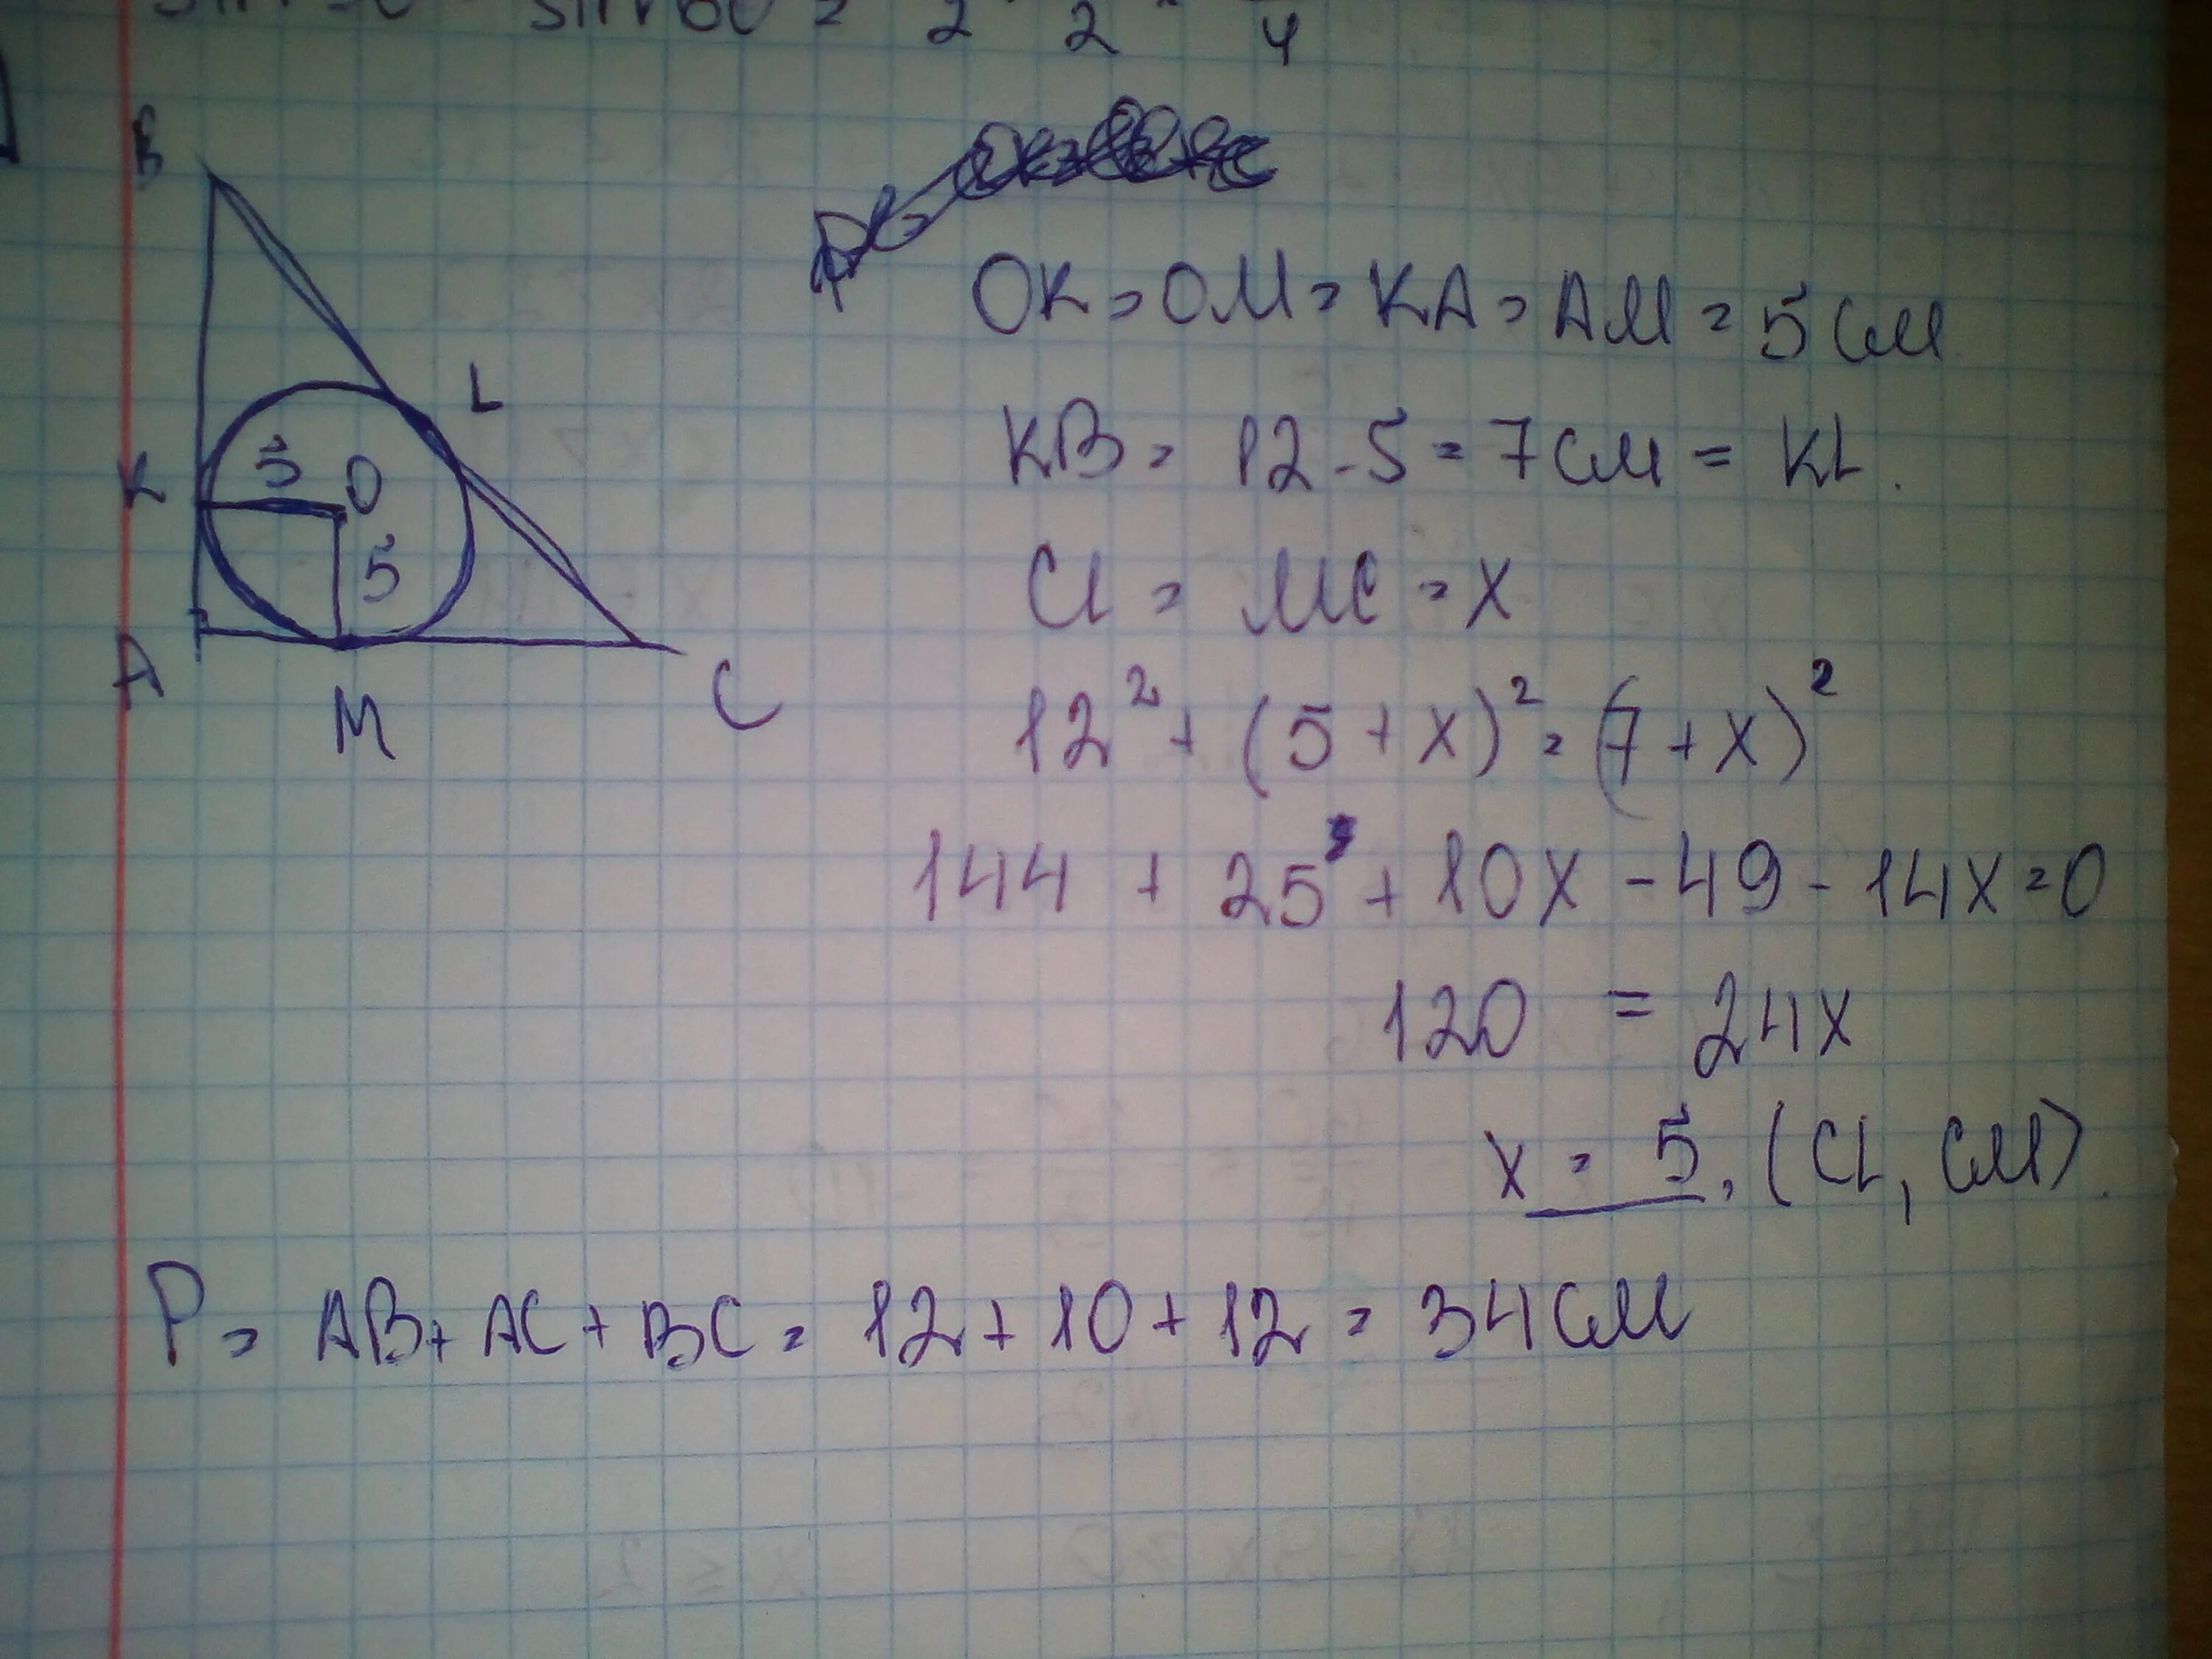 B
L
K
5
O
5
A
M
C
OK = OM = KA = AM = 5 см
KB = 12 - 5 = 7 см = KL.
CL = MC = x
12² + (5 + x)² = (7 + x)²
144 + 25 + 10x - 49 - 14x = 0
120 = 24x
x = 5. (CL, см).
P = AB + AC + BC = 12 + 10 + 12 = 34 см